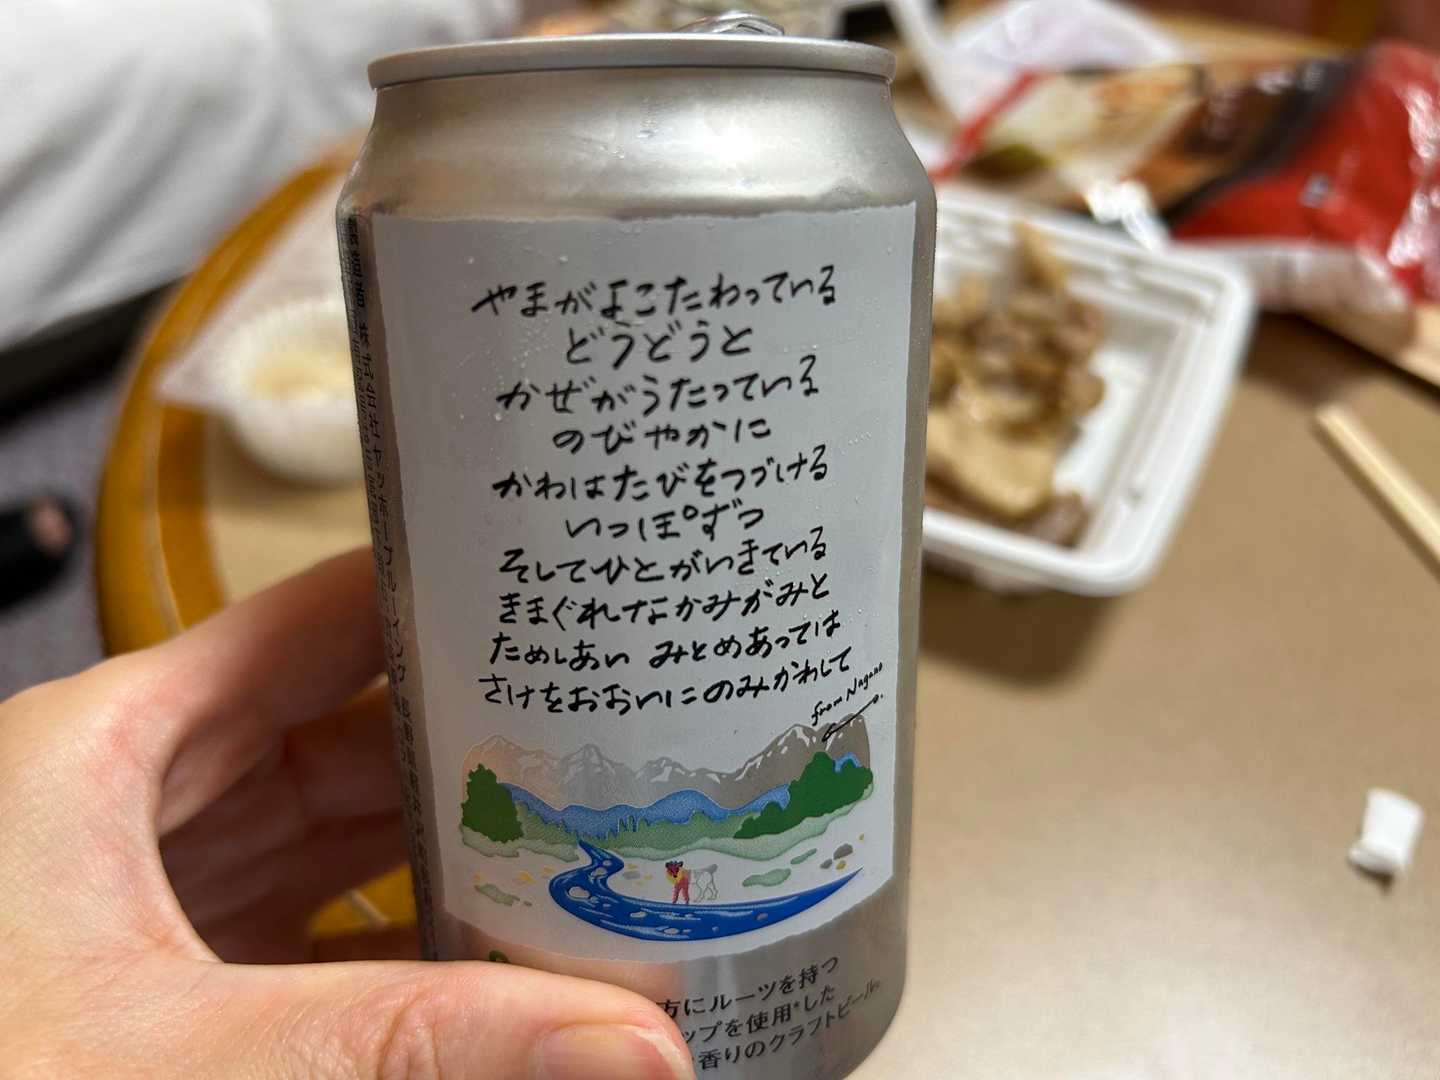 やまがよこたわっている
どうどうと
かぜがうたっている
のびやかに
かわはたびをつづける
いっぽずつ
そしてひとがいきている
きまぐれなかみがみと
ためしあい みとめあっては
さけをおおいにのみかわして
from Nagano.
方にルーツを持つ
ップを使用*した
香りのクラフトビール。
製造者 株式会社ヤッホーブルーイング 長野県軽井沢町